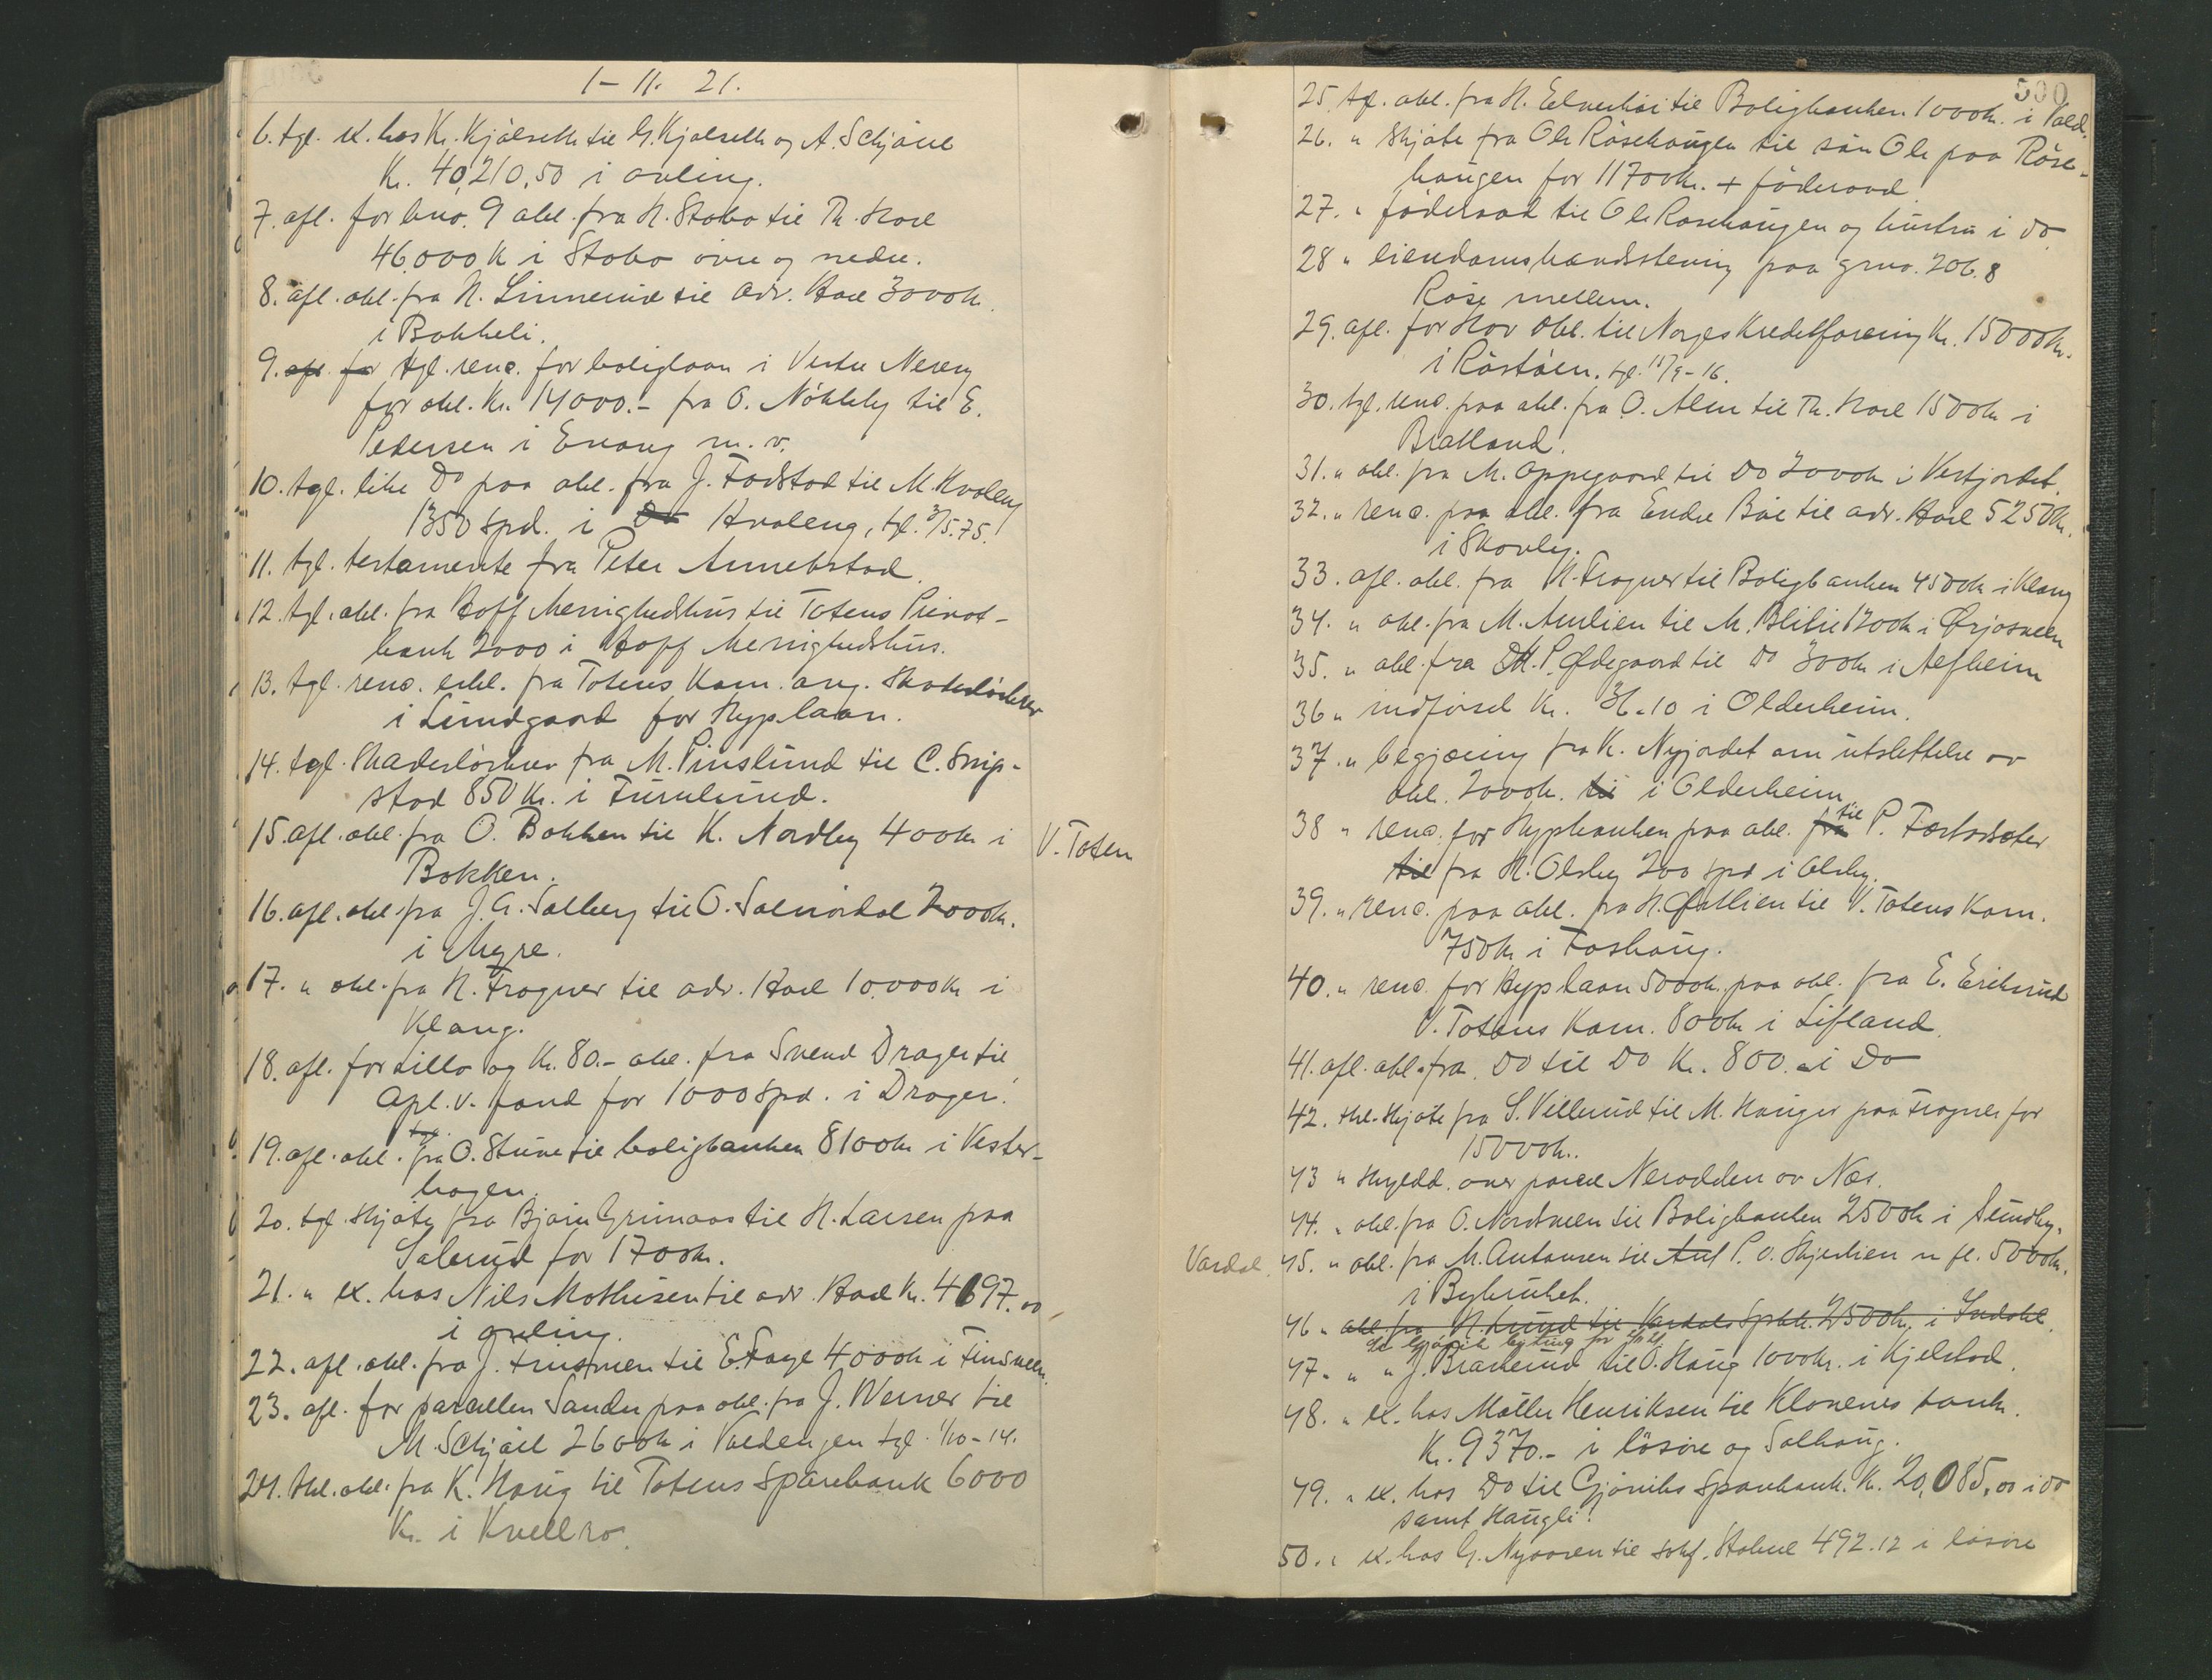 1-11. 21.
6. tgl. ex. hos Kr. Kjølseth til G. Kjølseth og A. Schjøll
Kr. 40,210,50 i avling.
7. afl. for bno. 9 obl. fra N. Stabo til Th. Hoel
46,000 K i Stabo övre og nedre.
8. afl. obl. fra N. Linnerud til adv. Hoel 3000k.
i Bakkeli.
9. afl. for tgl. renc. for boliglaan i Vestre Nereng
for obl. Kr. 14000.- fra O. Nökleby til E.
Pedersen i Evang m. v.
10. tgl. like Do paa obl. fra J. Fodstad til M. Kvaleng
1350 spd. i Do Hvaleng, tgl. 3/5.75.
11. tgl. testamente fra Peter Annebstad.
12. tgl. obl. fra Hoff Menighedshus til Totens Privat-
bank 2000 i Hoff Menighedshus.
13. tgl. renc. erkl. fra Totens Kom. ang. Skadeslösbrev
i Lundgaard for Hyplaan.
14. tgl. Skadeslösbrev fra M. Prinslund til C. Snip-
stad 850 Kr. i Furulund.
15. afl. obl. fra O. Bakken til K. Nordby 400k i V. Toten
Bakken.
16. afl. obl. fra J. A. Solberg til O. 2000k.
i Myre.
17. " obl. fra N. Frogner til adv. Hoel 10,000k i
Klang.
18. afl. for Lillo og Kr. 80.- obl. fra Svend Dröger til
Opl. v. fond for 1000 spd. i Dröger.
19. afl. obl. fra O. Stune til boligbanken 8100k i Vester-
hagen.
20. tgl. skjöte fra Björn Grimaas til H. Larsen paa
Salerud for 1700k.
21. " ex. hos Nils Mathisen til adv. Hoel Kr. 4697.00
i avling.
22. afl. obl. fra J. Finsveen til E. Fage 4000k i Finsveen.
23. afl. for parcellen Sandre paa obl. fra J. Werner til
M. Schjöll 2600k i Voldengen tgl. 1/10-14.
24. tgl. obl. fra K. Haug til Totens Sparebank 6000
Kr. i Kvellro.
500
25. tgl. obl. fra N. Elveshöi til Boligbanken 1000k. i Vold.
26. " Skjöte fra Ole Rösehaugen til sön Ole paa Röse-
haugen for 11700k. + föderaad.
27. " föderaad til Ole Rösehaugen og hustru i do
28 " eiendomshandstening paa grno. 206. 8
Röise mellem.
29. afl. for Hov obl. til Norges Kreditforening Kr. 15000k.
i Röstöien. tgl. 11/9-16.
30. tgl. renc. paa obl. fra O. Alm til Th. Hoel 1500k i
Bratland.
31. " obl. fra M. Oppegaard til Do 2000k i Vestjordet.
32. " renc. paa obl. fra Endre Böe til adv. Hoel 5250k.
i Skovly.
33. afl. obl. fra N. Frogner til Boligbanken 4500k i Klang
34. " obl. fra M. Amlien til M. Blilie 1200k i Ørjosveen
35. " obl. fra M. P. Ødegaard til Do 300k i Alfheim
36 " indförsel Kr. 36.10 i Olderheim.
37. " begjæring fra K. Nyjordet om utslettelse av
obl. 2000k. til i Olderheim
38 " renc. for Hypbanken paa obl. fra til P. Fortodsæter
til fra H. Olsby 200 spd i Olsby.
39. " renc. paa obl. fra N. Østlien til V. Totens Kom.
750k i Foshaug.
40. " renc. for Hyplaan 5000k. paa obl. fra E. Eriksrud
V. Totens Kom. 800k i Lifland.
41. afl. obl. fra Do til Do Kr. 800.- i Do
42. tgl. skjöte fra S. Villerud til M. Hauger paa Frogner for
15000k.
43 " skyldd. over parcel Nerodden av Næs.
44. " obl. fra O. Nordsveen til Boligbanken 2500k i Sundby.
Vardal. 45. " obl. fra M. Antonsen til P. O. Skjerlien m fl. 5000k.
i Bybruket.
46 " obl. fra N. Lund til Vardals Spbk. 2500k. i
47. " " J. Brakerud til O. Haug 1000kr. i Kjelstad.
48. " ex. hos Möller Henriksen til Klonenes bank.
Kr. 9370.- i lösöre og Solhaug.
49. " ex. hos Do til Gjöviks Sparebank. Kr. 20,085,00 i do
samt Haugli.
50. " ex. hos G. Nyaasen til sokf. Stabue 492.12 i lösöre